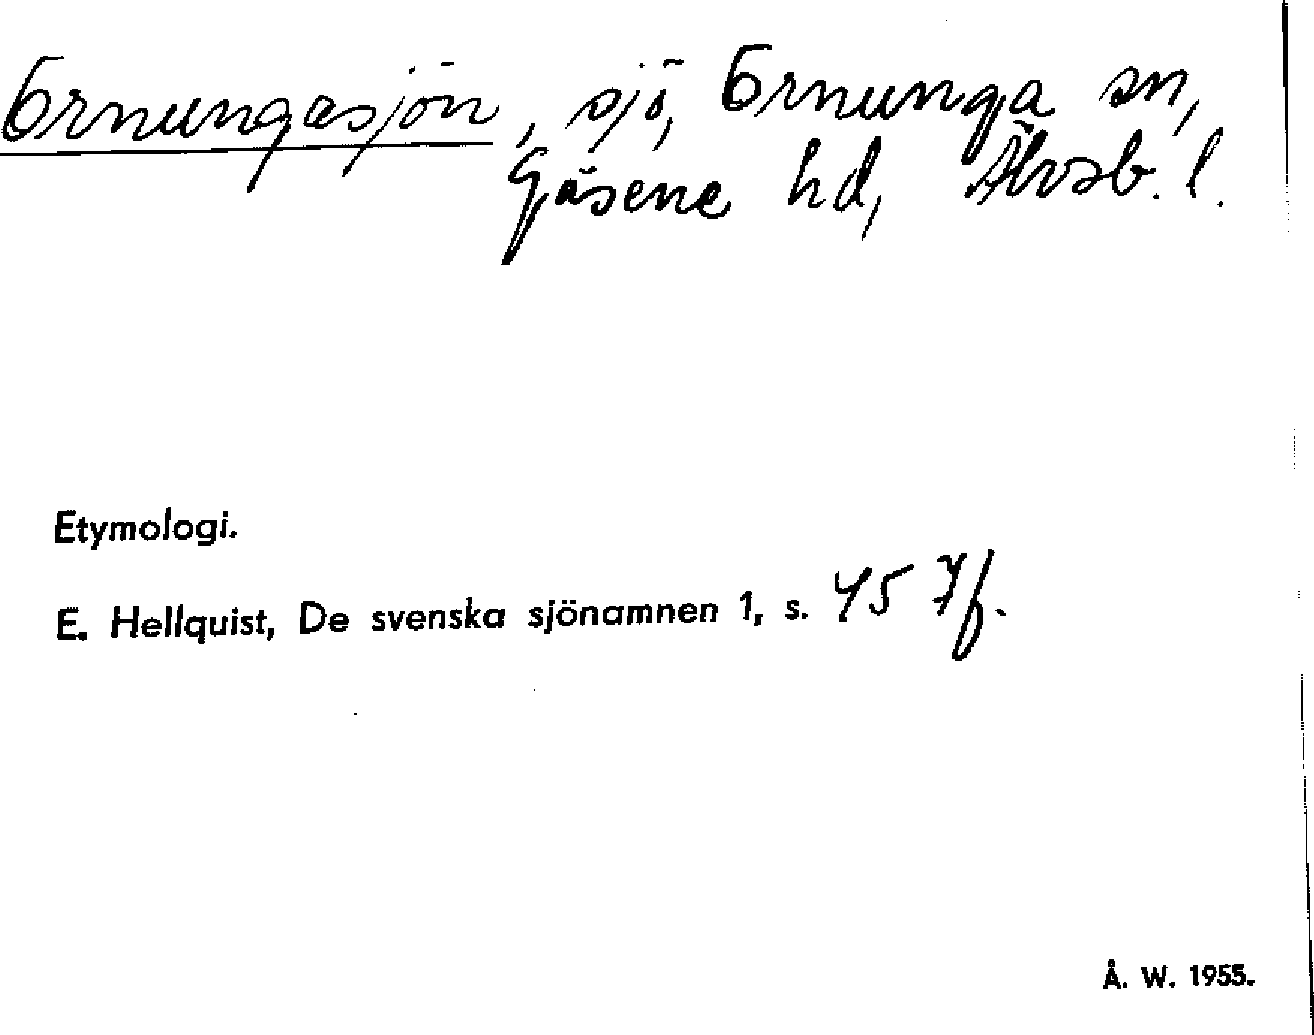 Ornungasjön, sjö, Ornunga sn,
Gäsene hd, Älvsb. l.
Etymologi.
E. Hellquist, De svenska sjönamnen 1, s. 457f.
Å. W. 1955.